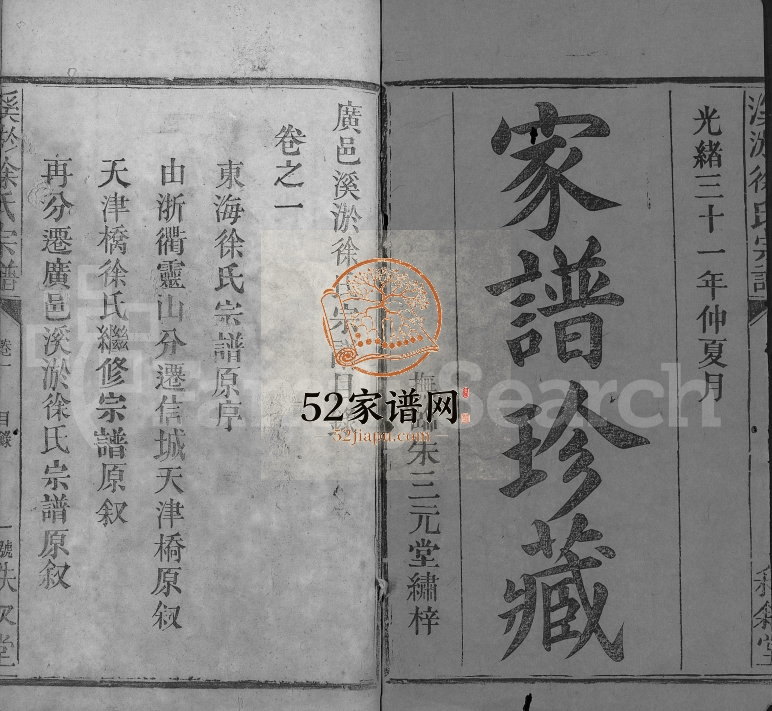 光緒三十一年仲夏月
家譜珍藏
朱三元堂繡梓
廣邑溪淤徐氏宗譜目錄
卷之一
東海徐氏宗譜原序
由浙衢靈山分遷信城天津橋原叙
天津橋徐氏繼修宗譜原叙
再分遷廣邑溪淤徐氏宗譜原叙
溪淤徐氏宗譜
卷一
目錄
一號
秩叙堂
52家谱网
52jiapu.com
FamilySearch